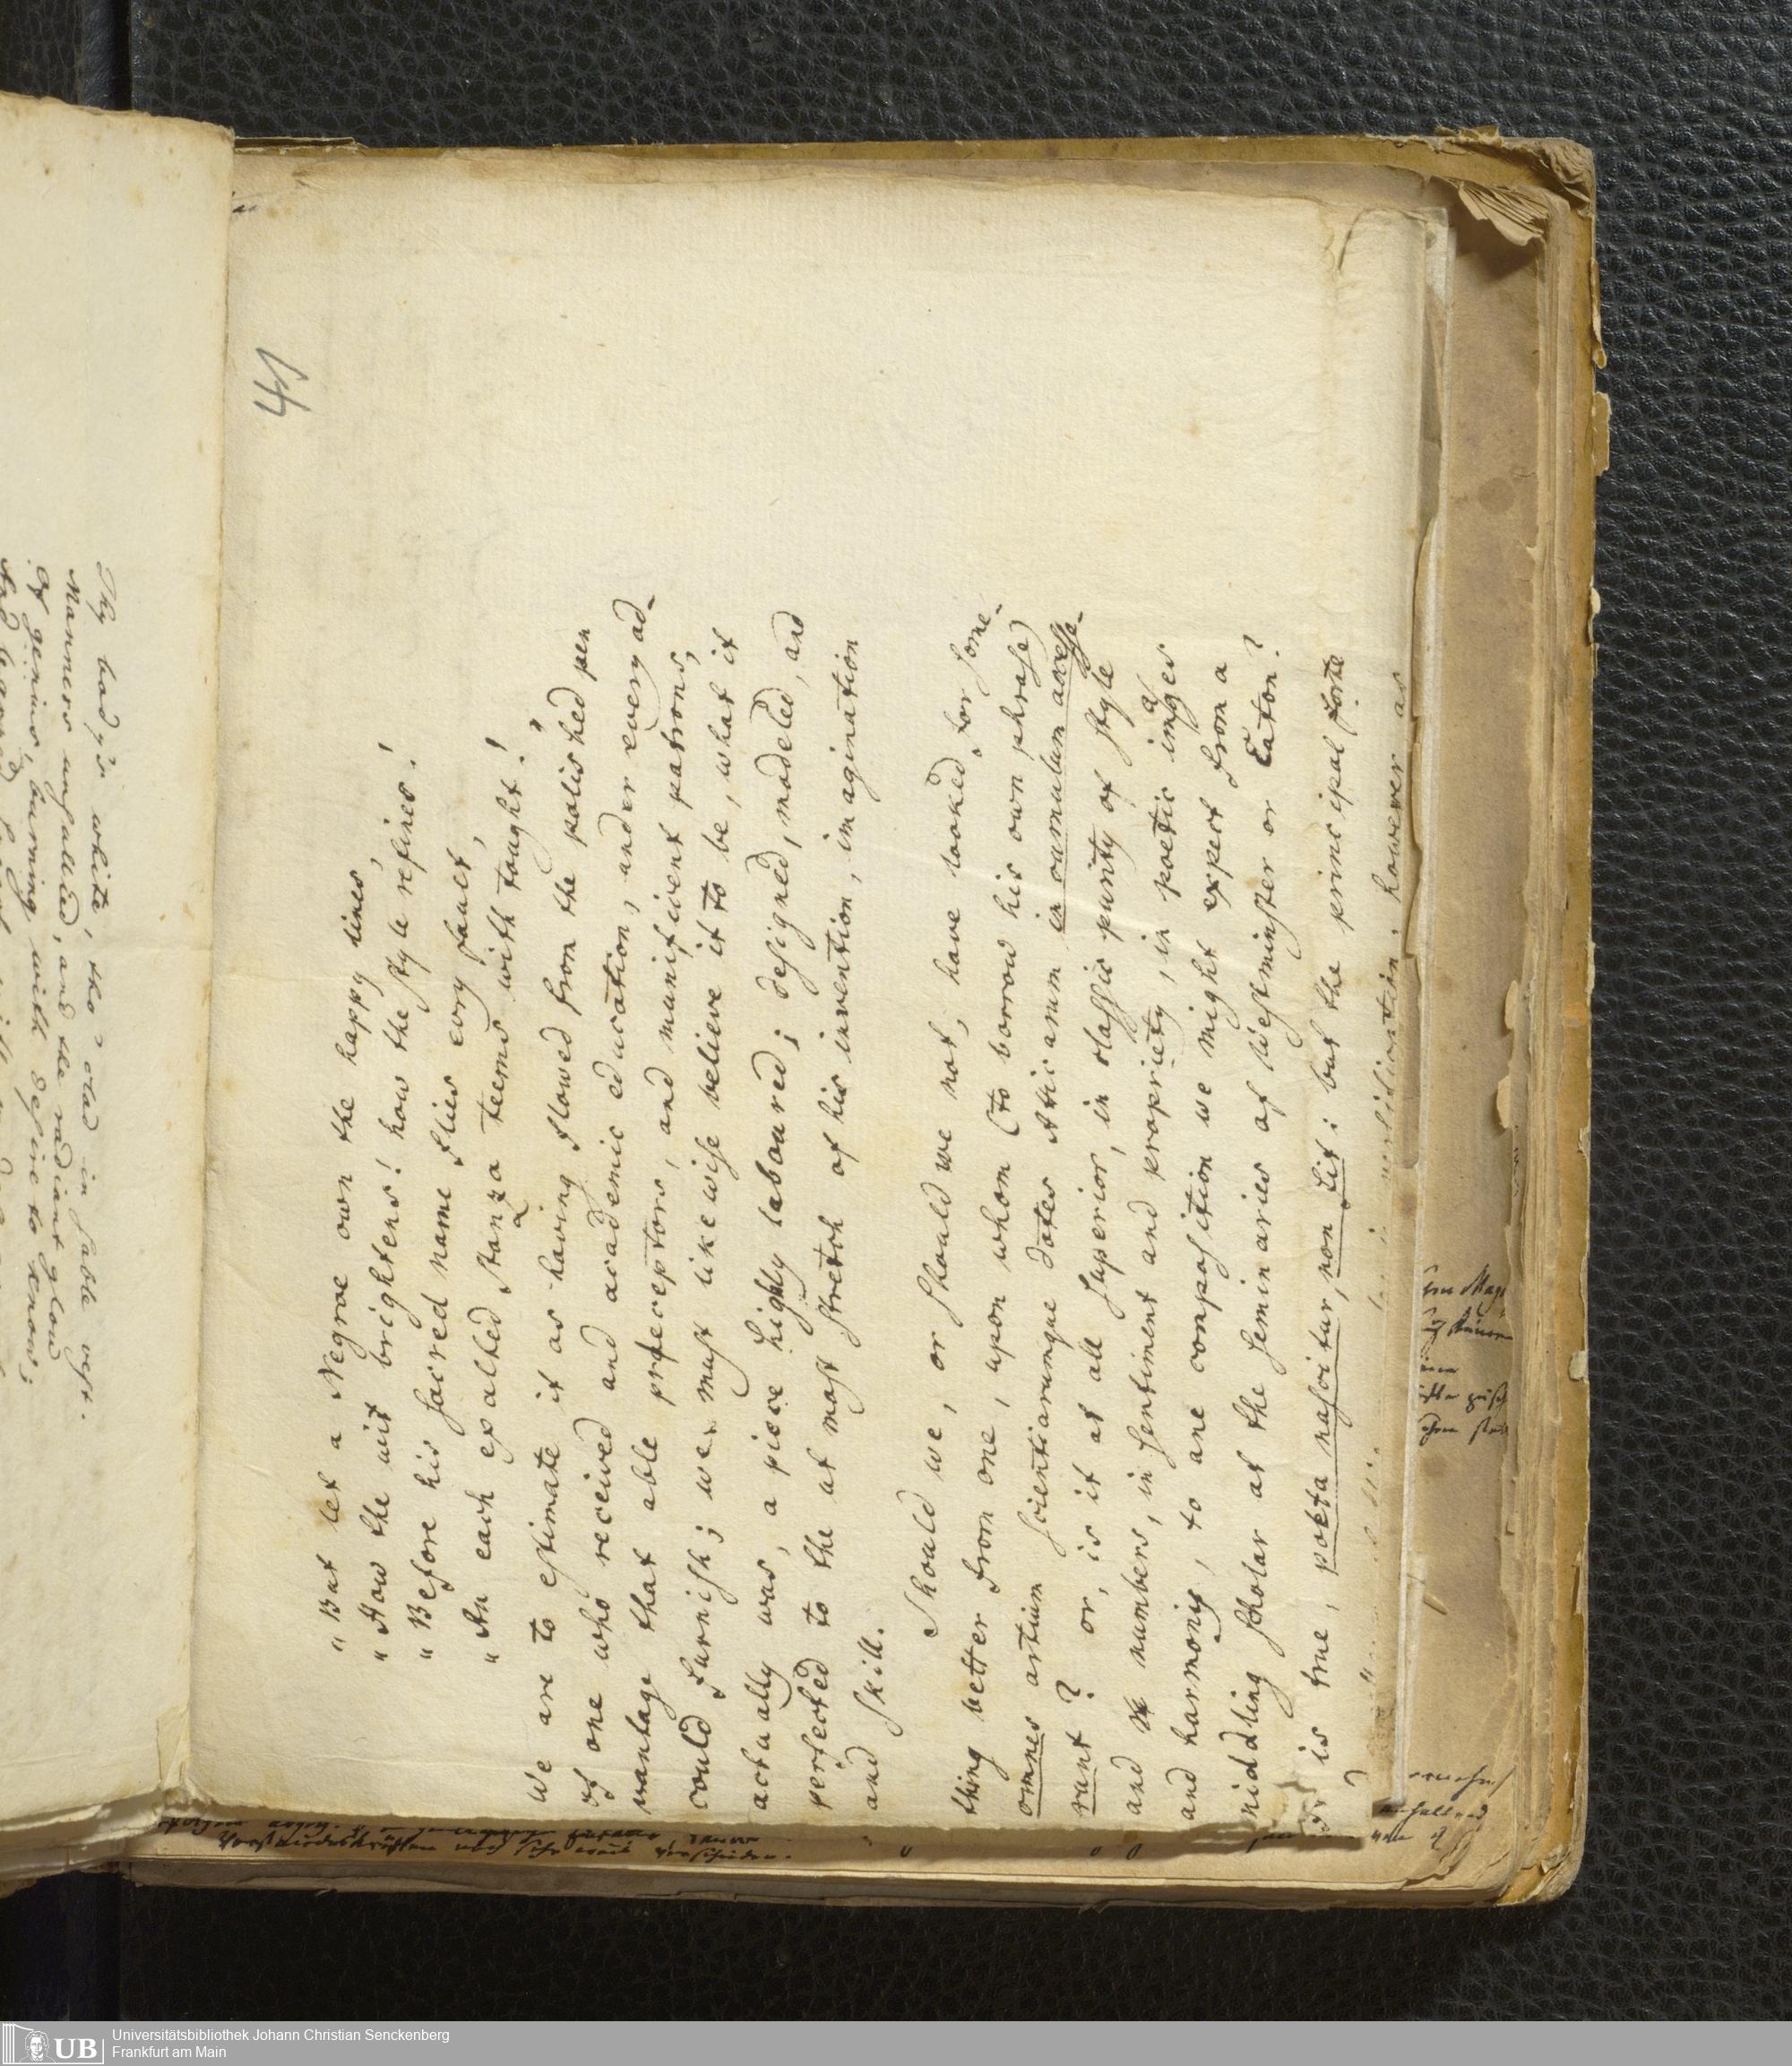 41
"But let a Negroe own the happy lines,
"How the wit brightens! how the style refines!
"Before his sacred name flies evry fault,
"An each exalted stanza teems with tought!"
We are to estimate it as having flowed from the polished pen
of one who received and academic education, under every ad-
vantage that able preceptors, and munificent patrons,
could furnish; we must likewise believe it to be, what it
actually was, a piece highly laboured; designed, modeled, and
perfected to the utmost stretch of his invention, imagination
and skill.
Should we, or should we not, have looked for some-
thing better from one, upon whom (to borrow his own phrase)
omnes artium scientiarumque dotes Atticanum in cumulum accesse-
runt? or, is it at all superior, in classic purity of style
and numbers, in sentiment and propriety, in poetic images
and harmony, to one composition we might expect from a
middling scholar at the seminaries of Westminster or Eaton?
is true, poeta nascitur, non fit: but the principal forte
however as
Thy body's white, tho' clad in sable vest.
Manners unsullied, and the radiant glow
Of genius, burning with desire to know;
Verstandeskräften und sehr weit verschieden.
UB
Universitätsbibliothek Johann Christian Senckenberg
Frankfurt am Main